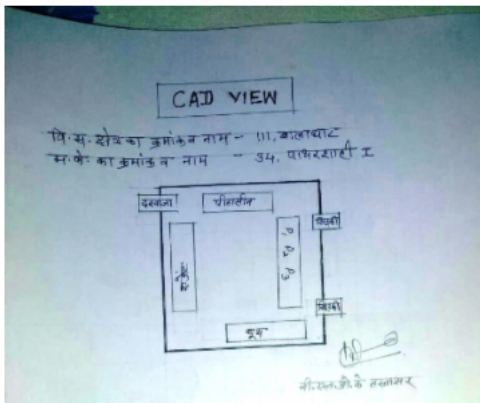 CAD VIEW
वि.स. क्षेत्र का क्रमांक व नाम - 111, बालाघाट
म.के. का क्रमांक व नाम - 34, पाथरशाही I
दरवाजा
पीठासीन
खिड़की
P1 P2 P3
एजेंट
खिड़की
बूथ
बी.एल.ओ. के हस्ताक्षर